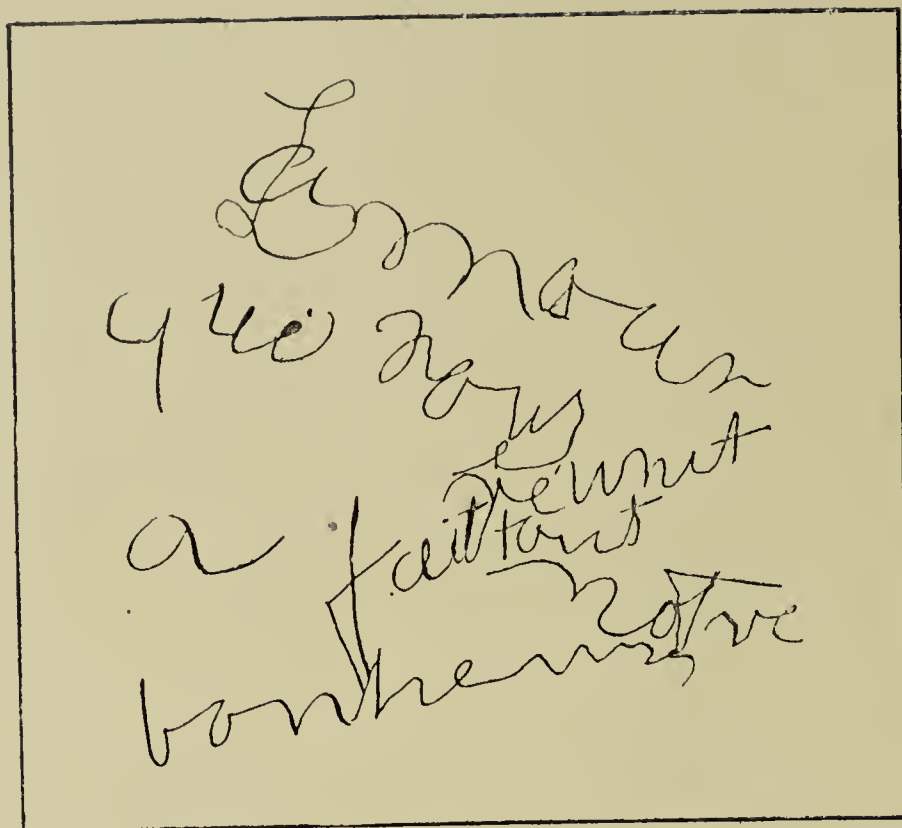 L'amour
qui nous
réunit
a fait tout
notre
bonheur